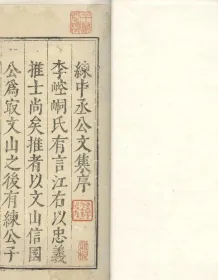 練中丞公文集序
李崆峒氏有言江右以忠義
推士尚矣推者以文山信國
公爲㝡文山之後有練公子